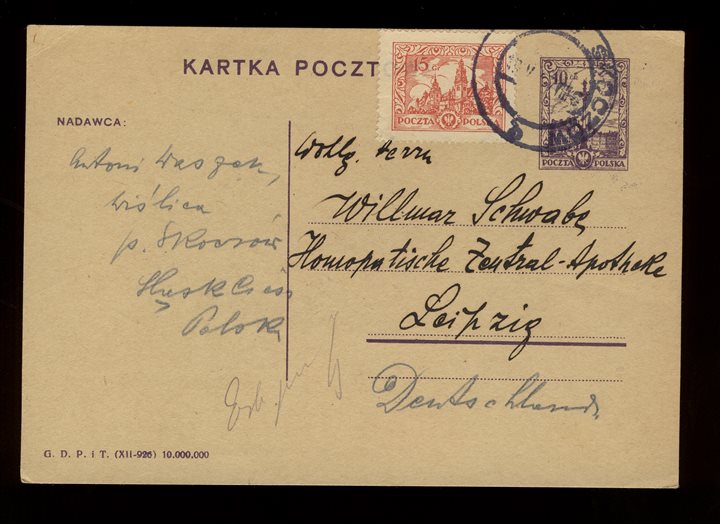 KARTKA POCZTO
15
POCZTA POLSKA
SKOCZÓW
10
POCZTA POLSKA
NADAWCA:
Antoni Waszek,
Wiślica
p. Skoczów
Śląsk Ciesz.
Polska
Wohlg. Herrn
Willmar Schwabe
Homöopatische Zentral-Apotheke
Leipzig
Deutschland.
G. D. P. i T. (XII-926) 10.000.000